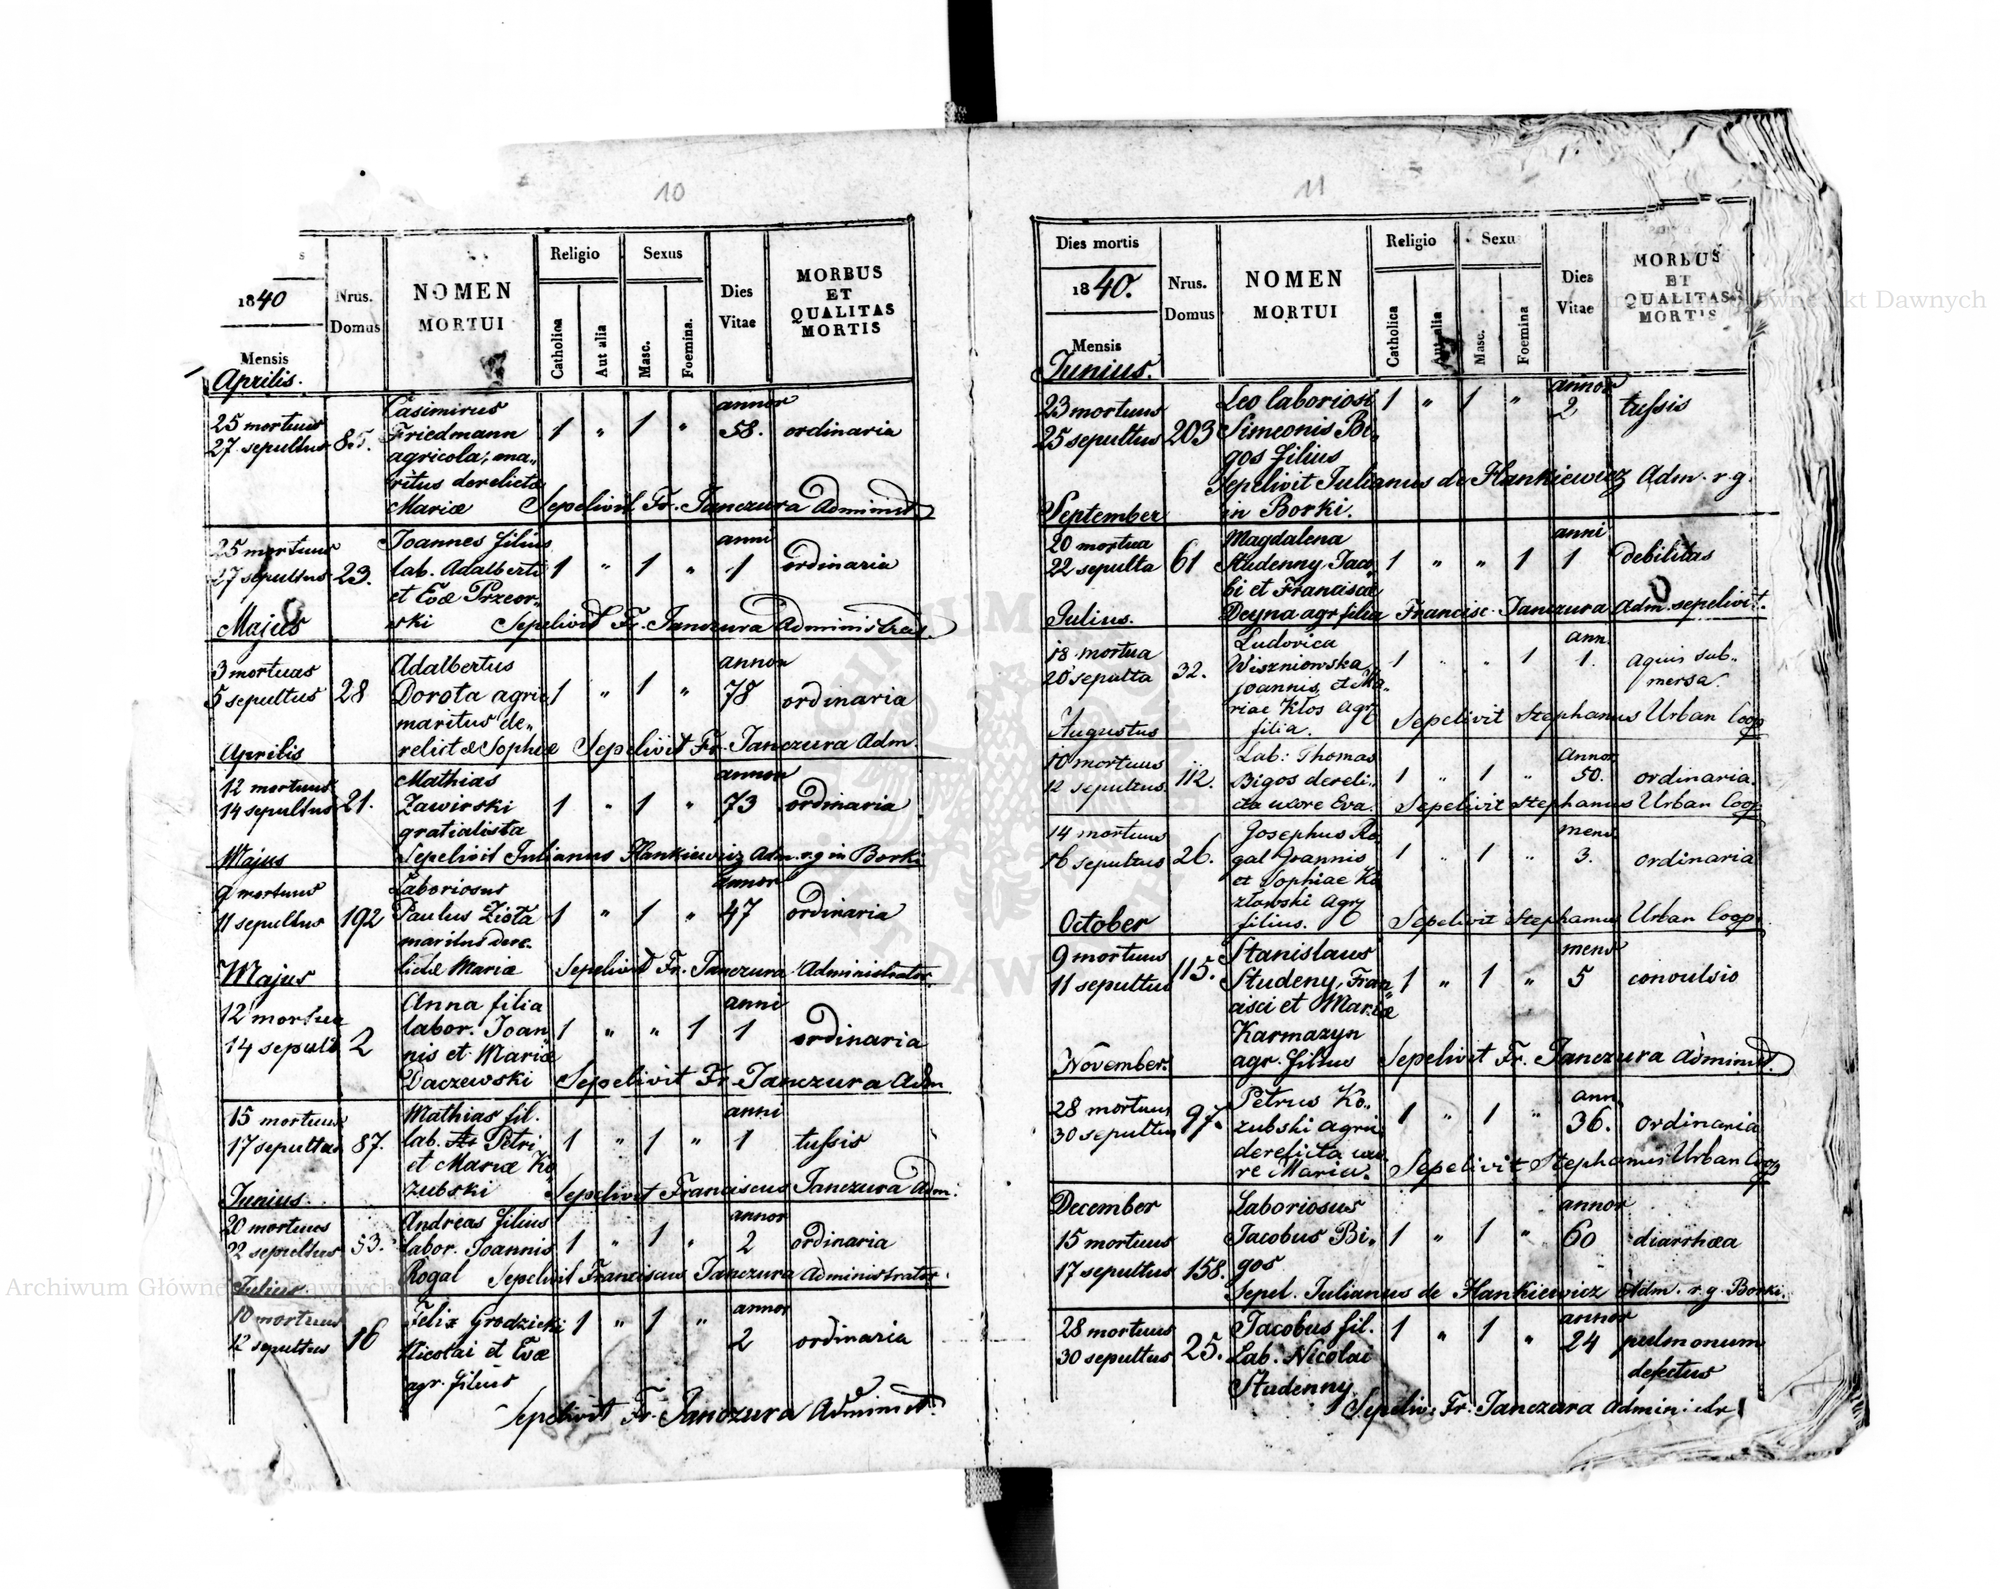 10
s
1840
Mensis
Aprilis.
Nrus.
Domus
NOMEN
MORTUI
Religio
Catholica
Aut alia
Sexus
Masc.
Foemina.
Dies
Vitae
MORBUS
ET
QUALITAS
MORTIS
25 mortuus
27 sepultus
85.
Casimirus
Friedmann
agricola, ma„
ritus derelictæ
Mariæ
1 „ 1 „
annor
58.
ordinaria
Sepelivit Fr. Janczura Administ
25 mortuus
27 sepultus
23.
Joannes filius
lab. Adalberti
et Evæ Przeor„
ski
1 „ 1 „
anni
1
ordinaria
Sepelivit Fr. Janczura Administrat.
Majus
3 mortuus
5 sepultus
28
Adalbertus
Dorota agric
maritus de„
relictæ Sophiæ
1 „ 1 „
annor
78
ordinaria
Sepelivit Fr. Janczura Adm.
Aprilis
12 mortuus
14 sepultus
21.
Mathias
Zawirski
gratialista
1 „ 1 „
annor
73
ordinaria
Sepelivit Julianus Hankiewicz Adm. r.g in Borki
Majus
9 mortuus
11 sepultus
192
Laboriosus
Paulus Zioła
maritus dere„
lictæ Mariæ
1 „ 1 „
annor
47
ordinaria
Sepelivit Fr. Janczura Administrator.
Majus
12 mortua
14 sepult
2
Anna filia
labor. Joan
nis et Mariæ
Daczewski
1 „ „ 1
anni
1
ordinaria
Sepelivit Fr. Janczura Adm
15 mortuus
17 sepultus
87.
Mathias fil.
lab. Petri
et Mariæ Ko
zubski
1 „ 1 „
anni
1
tussis
Sepelivit Franciscus Janczura Adm.
Junius.
20 mortuus
22 sepultus
53.
Andreas filius
labor. Joannis
Rogal
1 „ 1 „
annor
2
ordinaria
Sepelivit Franciscus Janczura Administrator.
Julius.
10 mortuus
12 sepultus
16
Felix Grodzicki
Nicolai et Evæ
agr. filius
1 „ 1 „
annor
2
ordinaria
Sepelivit Fr. Janczura Administ.
11
Dies mortis
1840.
Mensis
Junius.
Nrus.
Domus
NOMEN
MORTUI
Religio
Catholica
Aut alia
Sexu
Masc.
Foemina
Dies
Vitae
MORBUS
ET
QUALITAS
MORTIS
23 mortuus
25 sepultus
203
Leo laboriosi
Simeonis Bi„
gos filius
1 „ 1 „
annor
2
tussis
Sepelivit Julianus de Hankiewicz Adm. r.g.
in Borki.
September
20 mortua
22 sepulta
61
Magdalena
Studenny Jaco„
bi et Franciscæ
Deyna agr filia
1 „ „ 1
anni
1
debilitas
Francisc. Janczura Adm. sepelivit.
Julius.
18 mortua
20 sepulta
32.
Ludovica
Wiszniowska
Joannis, et Ma„
riae Kłos agr.
filia.
1 „ „ 1
ann.
1.
aquis sub„
mersa.
Sepelivit Stephanus Urban Coop
Augustus
10 mortuus
12 sepultus.
112.
Lab: Thomas
Bigos dereli„
cta uxore Eva.
1 „ 1 „
annor
50.
ordinaria.
Sepelivit Stephanus Urban Coop
14 mortuus
16 sepultus
26.
Josephus Ro„
gal Joannis
et Sophiae Ko
złowski agr
filius.
1 „ 1 „
mens.
3.
ordinaria
Sepelivit Stephanus Urban Coop.
October
9 mortuus
11 sepultus
115.
Stanislaus
Studeny, Fran„
cisci et Mariæ
Karmazyn
agr. filius
1 „ 1 „
mens
5
convulsio
Sepelivit Fr. Janczura Administ.
November.
28 mortuus
30 sepultus
97.
Petrus Ko„
zubski agric.
derelicta uxo„
re Maria.
1 „ 1 „
ann
36.
ordinaria
Sepelivit Stephanus Urban Coop
December
15 mortuus
17 sepultus
158.
Laboriosus
Jacobus Bi„
gos
1 „ 1 „
annor
60
diarrhœa
Sepel. Julianus de Hankiewicz Adm. r.g. Borki.
28 mortuus
30 sepultus
25.
Jacobus fil.
Lab. Nicolai
Studenny
1 „ 1 „
annor
24
pulmonum
defectus
Sepeliv. Fr. Janczura Administr
Archiwum Główne Akt Dawnych